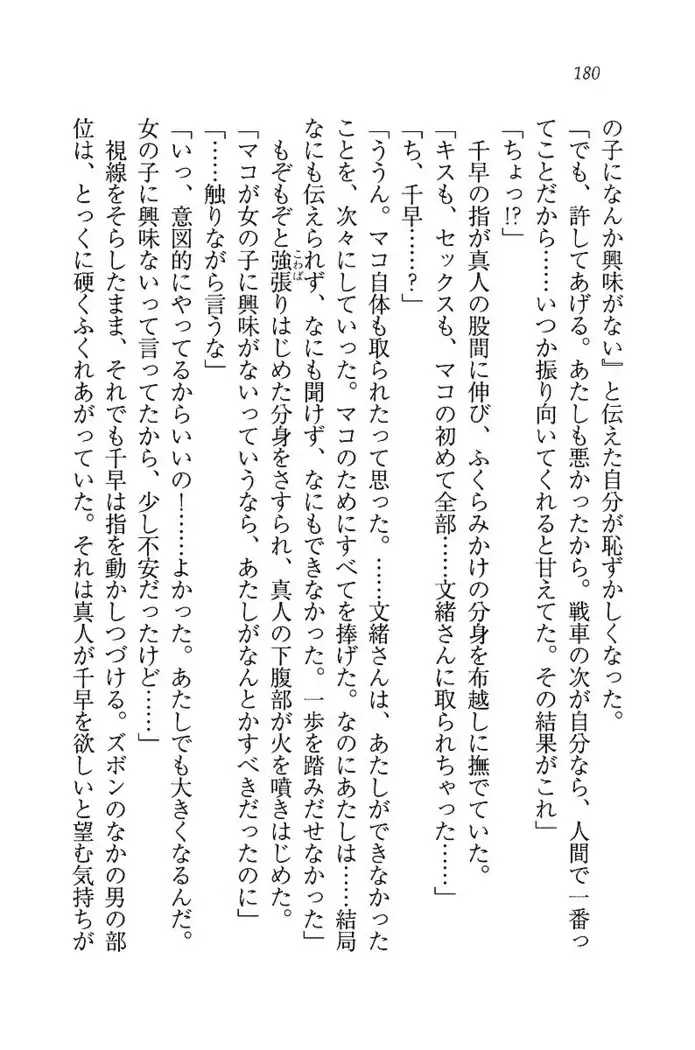 180
の子になんか興味がない』と伝えた自分が恥ずかしくなった。
「でも、許してあげる。あたしも悪かったから。戦車の次が自分なら、人間で一番っ
てことだから……いつか振り向いてくれると甘えてた。その結果がこれ」
「ちょっ!?」
千早の指が真人の股間に伸び、ふくらみかけの分身を布越しに撫でていた。
「キスも、セックスも、マコの初めて全部……文緒さんに取られちゃった……」
「ち、千早……?」
「ううん。マコ自体も取られたって思った。……文緒さんは、あたしができなかった
ことを、次々にしていった。マコのためにすべてを捧げた。なのにあたしは……結局
なにも伝えられず、なにも聞けず、なにもできなかった。一歩を踏みだせなかった」
もぞもぞと強張りはじめた分身をさすられ、真人の下腹部が火を噴きはじめた。
こわば
「マコが女の子に興味がないっていうなら、あたしがなんとかすべきだったのに」
「……触りながら言うな」
「いっ、意図的にやってるからいいの！……よかった。あたしでも大きくなるんだ。
女の子に興味ないって言ってたから、少し不安だったけど……」
視線をそらしたまま、それでも千早は指を動かしつづける。ズボンのなかの男の部
位は、とっくに硬くふくれあがっていた。それは真人が千早を欲しいと望む気持ちが